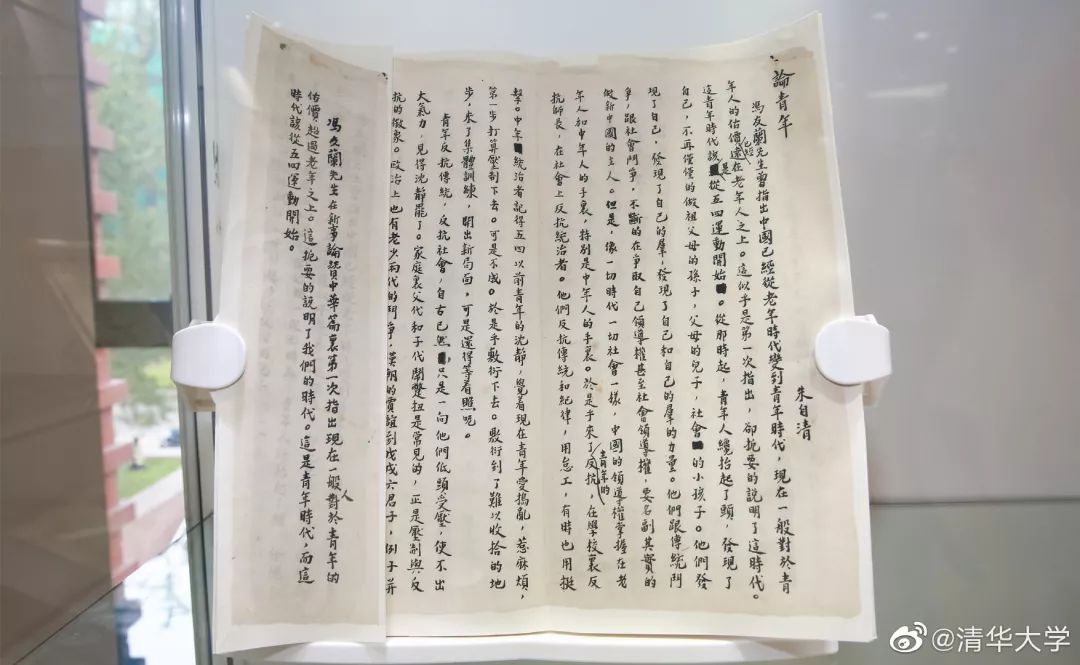 論青年
朱自清
馮友蘭先生曾指出中國已經從老年時代變到青年時代，現在一般對於青
年人的估價已經在老年人之上。這似乎是第一次指出，卻扼要的說明了這時代。
這青年時代該是從五四運動開始。從那時起，青年人纔抬起了頭，發現了
自己，不再僅僅的做祖父母的孫子，父母的兒子，社會的小孩子。他們發
現了自己，發現了自己的羣，發現了自己和自己的羣的力量。他們跟傳統鬥
爭，跟社會鬥爭，不斷的在爭取自己領導權甚至社會領導權，要名副其實的
做新中國的主人。但是，像一切時代一切社會一樣，中國的領導權掌握在老
年人和中年人的手裏，特別是中年人的手裏。於是乎來了青年的反抗，在學校裏反
抗師長，在社會上反抗統治者。他們反抗傳統和紀律，用怠工，有時也用挺
擊。中年統治者記得五四以前青年的沈靜，覺着現在青年愛搗亂，惹麻煩，
第一步打算壓制下去。可是不成。於是乎敷衍下去。敷衍到了難以收拾的地
步，來了集體訓練，開出新局面，可是還得等着瞧呢。
青年反抗傳統，反抗社會，自古已然，只是一向他們低頭受壓，使不出
大氣力，見得沈靜罷了。家庭裏父代和子代鬧彆扭是常見的，正是壓制與反
抗的徵象。政治上也有老少兩代的鬥爭，漢朝的賈誼到戊戌六君子，例子并
馮友蘭先生在新事論讚中華篇裏第一次指出現在一般人對於青年的
估價，超過老年之上。這扼要的說明了我們的時代。這是青年時代，而這
時代該從五四運動開始。
@清华大学